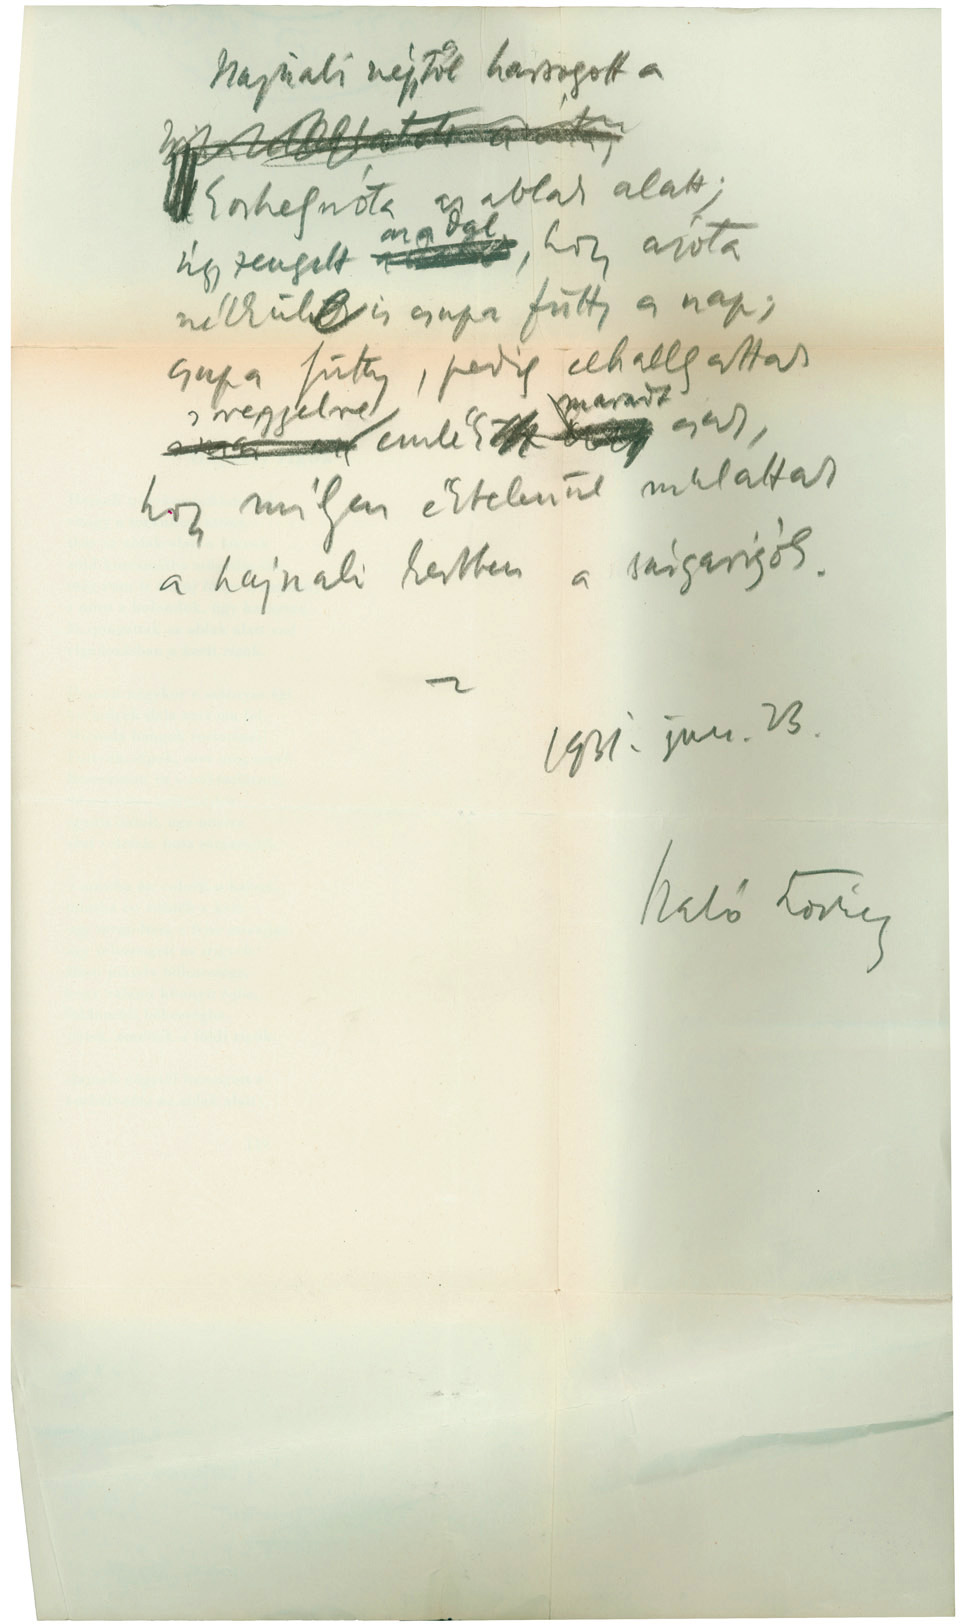 Hajnali négytől harsogott a
Korhelynóta az ablak alatt;
úgy zengett az a dal, hogy azóta
nélkülük is csupa fütty a nap;
csupa fütty, pedig elhallgattak
s reggelre emlék maradt csak,
hogy milyen éktelenül mulattak
a hajnali kertben a sárgarigók.
1931. jun. 23.
Szabó Lőrinc